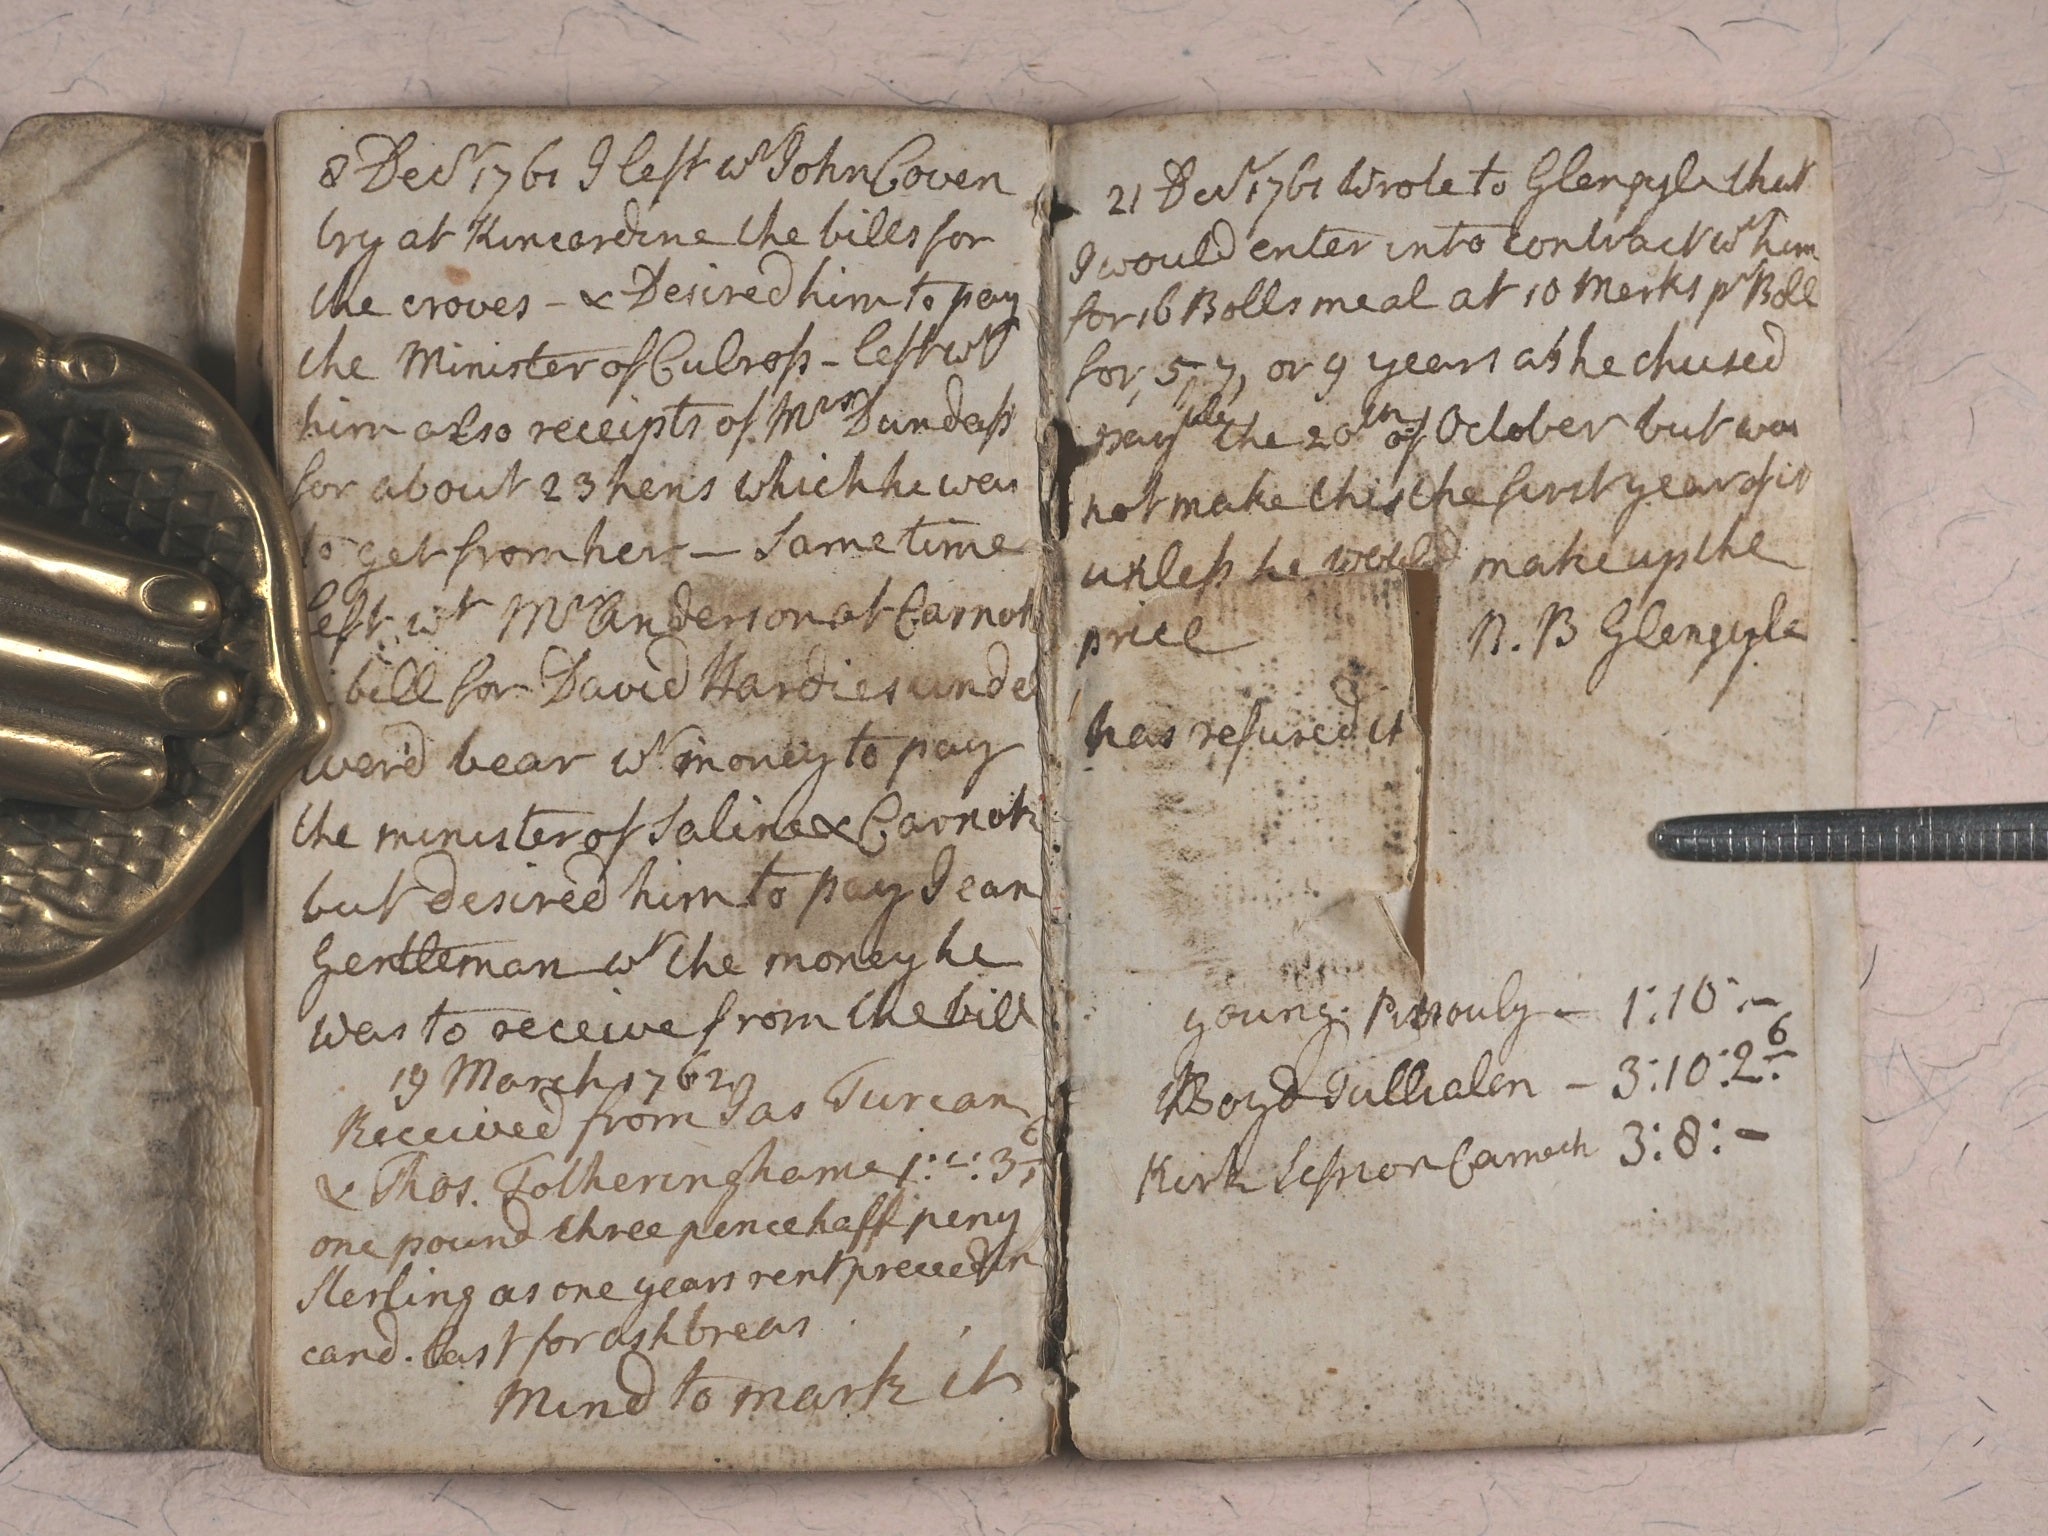 8 Decr 1761 I left wt John Coven
try at Kincardine the bills for
the croves - & Desired him to pay
the Minister of Culross - left wt
him also receipts of Mrs Dundass
for about 23 hens which he was
to get from her - Same time
left wt Mr Anderson at Carnok
bill for David Hardies unde
werd bear wt money to pay
the minister of Saline & Carnok
but desired him to pay Jean
Gentleman wt the money he
was to receive from the bill
19 March 1762
Received from Jas Turcan
& Thos. Fotheringhame 1:-:3 6
one pound three pence halfpeny
Sterling as one years rent preceedin
cand. last for ashbreas
Mind to mark it
21 Decr 1761 Wrote to Glengyle that
I would enter into contract wt him
for 16 Bolls meal at 10 Merks pr Boll
for, 5, 7, or 9 years as he chused
payble the 20th of October but wou
not make this the first year of it
unless he would make up the
price N. B Glengyle
has refused it
young - 1:10:-
Boyd Tullialen - 3:10:2 6
Kirk Session Carnoch 3:8:-